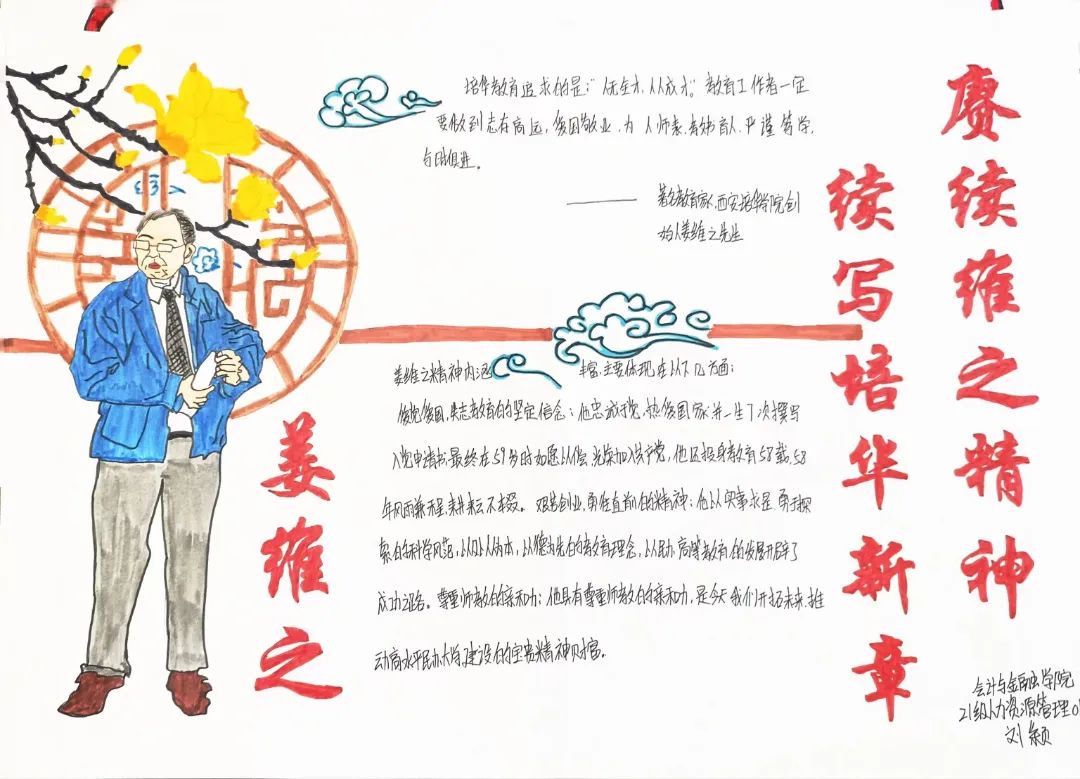 赓续维之精神
续写培华新章
培华教育追求的是:“人无全才,人人成才。”教育工作者一定
要做到志有高远,爱国敬业,为人师表,教书育人,严谨笃学,
与时俱进。
——著名教育家、西安培华学院创
始人姜维之先生
姜维之
姜维之精神内涵丰富,主要体现在以下几方面:
爱党爱国,矢志教育的坚定信念:他忠诚于党、热爱国家并一生了次撰写
入党申请书,最终在59岁时如愿以偿,光荣加入共产党,他还投身教育58载,58
年风雨兼程,耕耘不辍。艰苦创业,勇往直前的精神:他以实事求是,勇于探
索的科学风范,以人为本,以德为先的教育理念,以民办高等教育的发展开辟了
成功之路。尊重师教的亲和力:他具有尊重师教的亲和力,是今天我们开拓未来,推
动高水平民办大学建设的宝贵精神财富。
会计与金融学院
21级人力资源管理0
刘颖